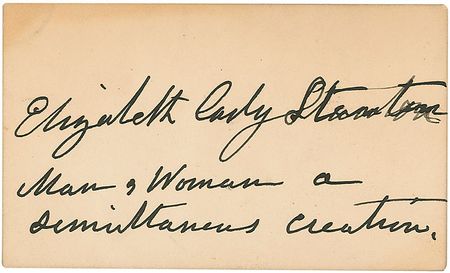 Elizabeth Cady Stanton
Man & Woman a
simultaneous creation.